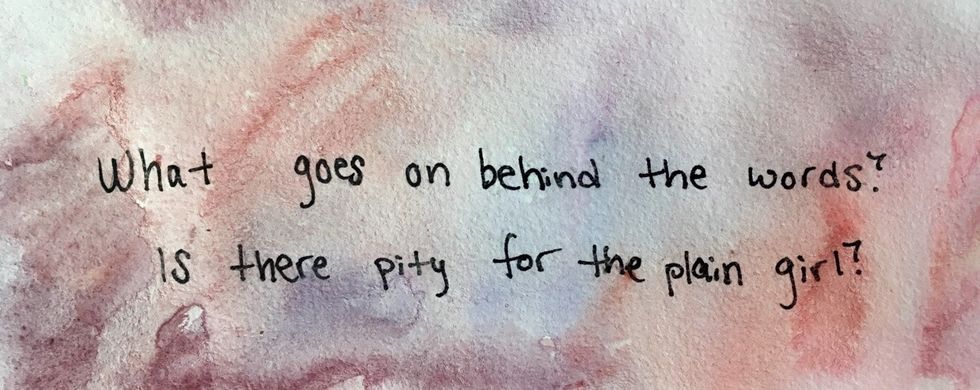 What goes on behind the words?
Is there pity for the plain girl?